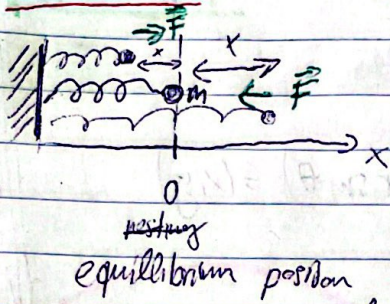 F
x X
m F
X
0
resting
equillibrium position